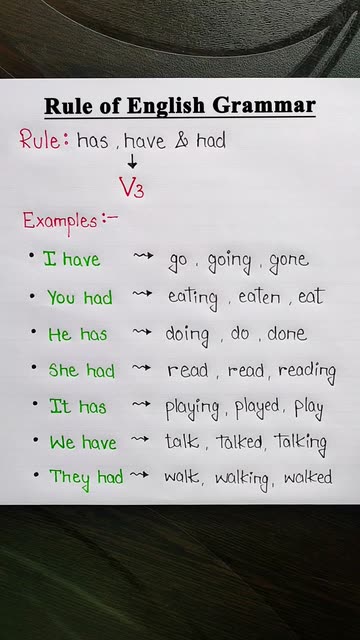 Rule of English Grammar
Rule: has, have & had
↓
V3
Examples:-
• I have ⇝ go, going, gone
• You had ⇝ eating, eaten, eat
• He has ⇝ doing, do, done
• She had ⇝ read, read, reading
• It has ⇝ playing, played, play
• We have ⇝ talk, talked, talking
• They had ⇝ walk, walking, walked